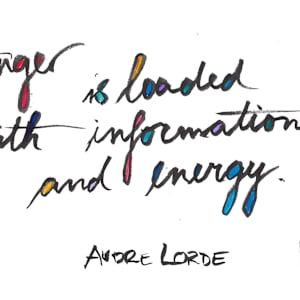 nger is loaded
ith information
and energy.
AUDRE LORDE